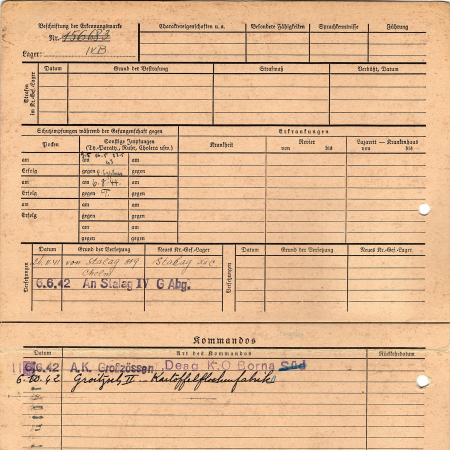 Beschriftung der Erkennungsmarke
Nr. 156683
Lager: IVB
Charaktereigenschaften u. a.
Besondere Fähigkeiten
Sprachkenntnisse
Führung
Strafen im Kr.-Gef.-Lager
Datum
Grund der Bestrafung
Strafmaß
Verbüßt, Datum
Schutzimpfungen während der Gefangenschaft gegen
Pocken
Sonstige Impfungen
(Ty.-Paraty., Ruhr, Cholera usw.)
Erkrankungen
Krankheit
Revier
von bis
Lazarett — Krankenhaus
von bis
am am am
Erfolg gegen gegen
am am 6.8.44. am
Erfolg gegen T. gegen
am am am
Erfolg gegen gegen
am am
gegen gegen
Versetzungen
Datum
Grund der Versetzung
Neues Kr.-Gef.-Lager
Versetzungen
Datum
Grund der Versetzung
Neues Kr.-Gef.-Lager
von Stalag 319 Stalag
Cholm
6.6.42 An Stalag IV G Abg.
Kommandos
Datum
Art des Kommandos
Rückkehrdatum
6.42 A.K. Großzössen, Deag K.O Borna Süd
6.10.42 Groitzsch II Kartoffelflockenfabrik